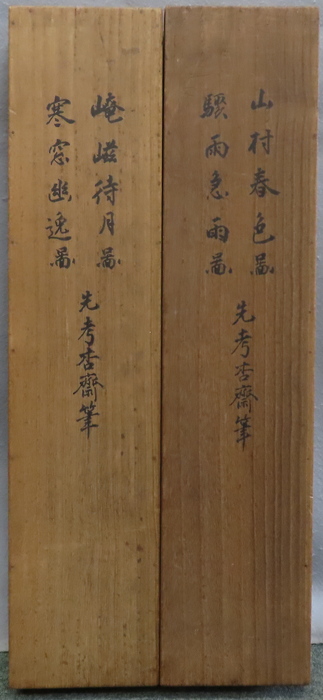 山村春色啚
驟雨急雨啚
先考杏齋筆
崦嵫待月啚
寒窓幽逸啚
先考杏齋筆